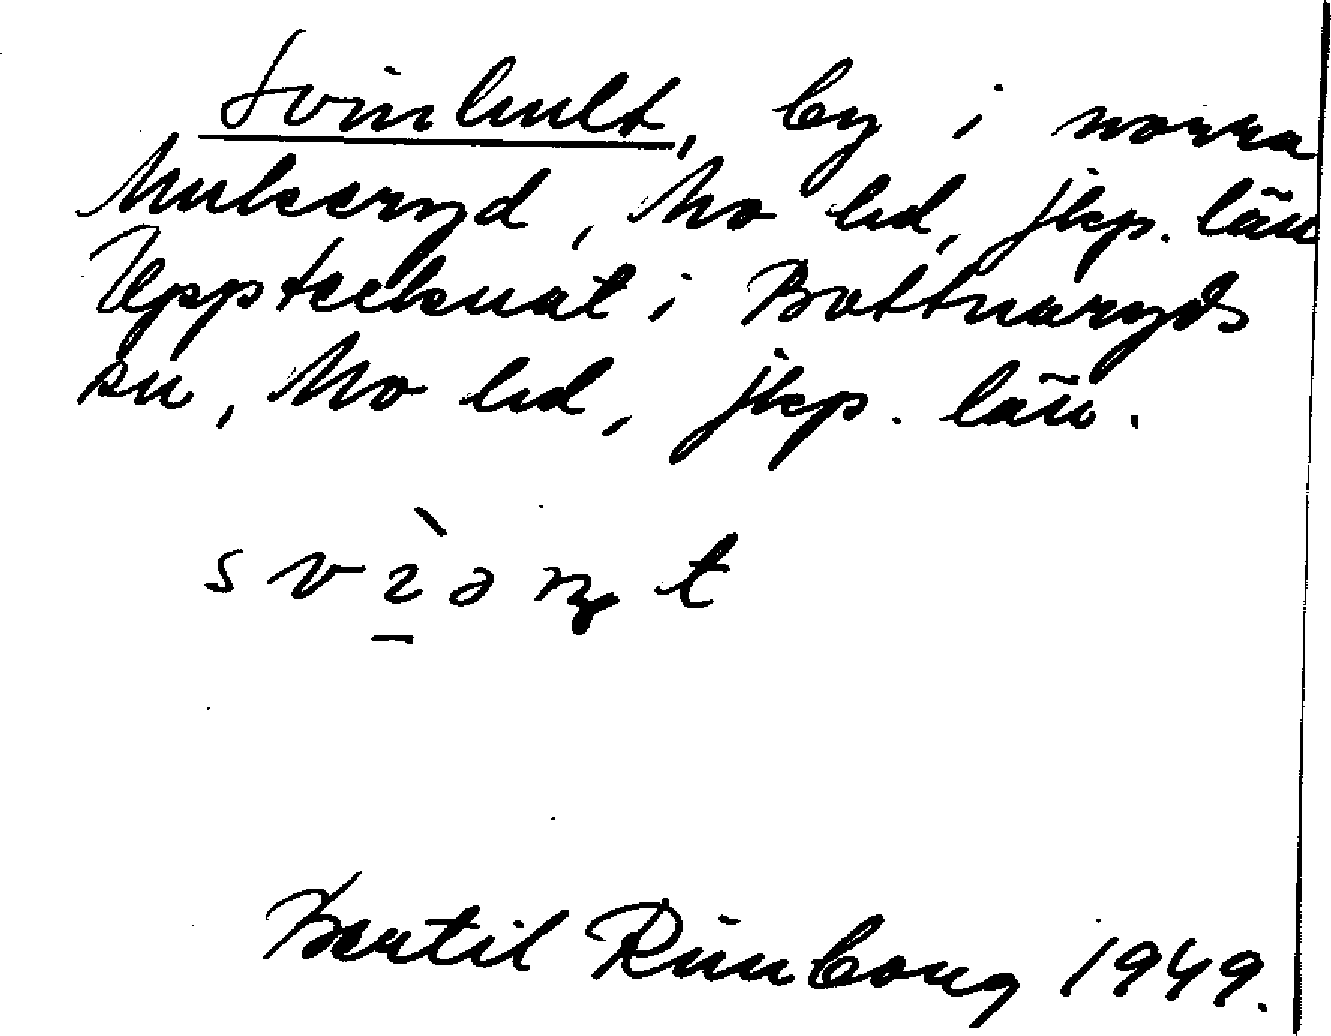 Svinhult, by i norra
Mulseryd, Mo hd, Jkp. län
Upptecknat i Bottnaryds
sn, Mo hd, Jkp. län.
Bertil Rimborg 1949.